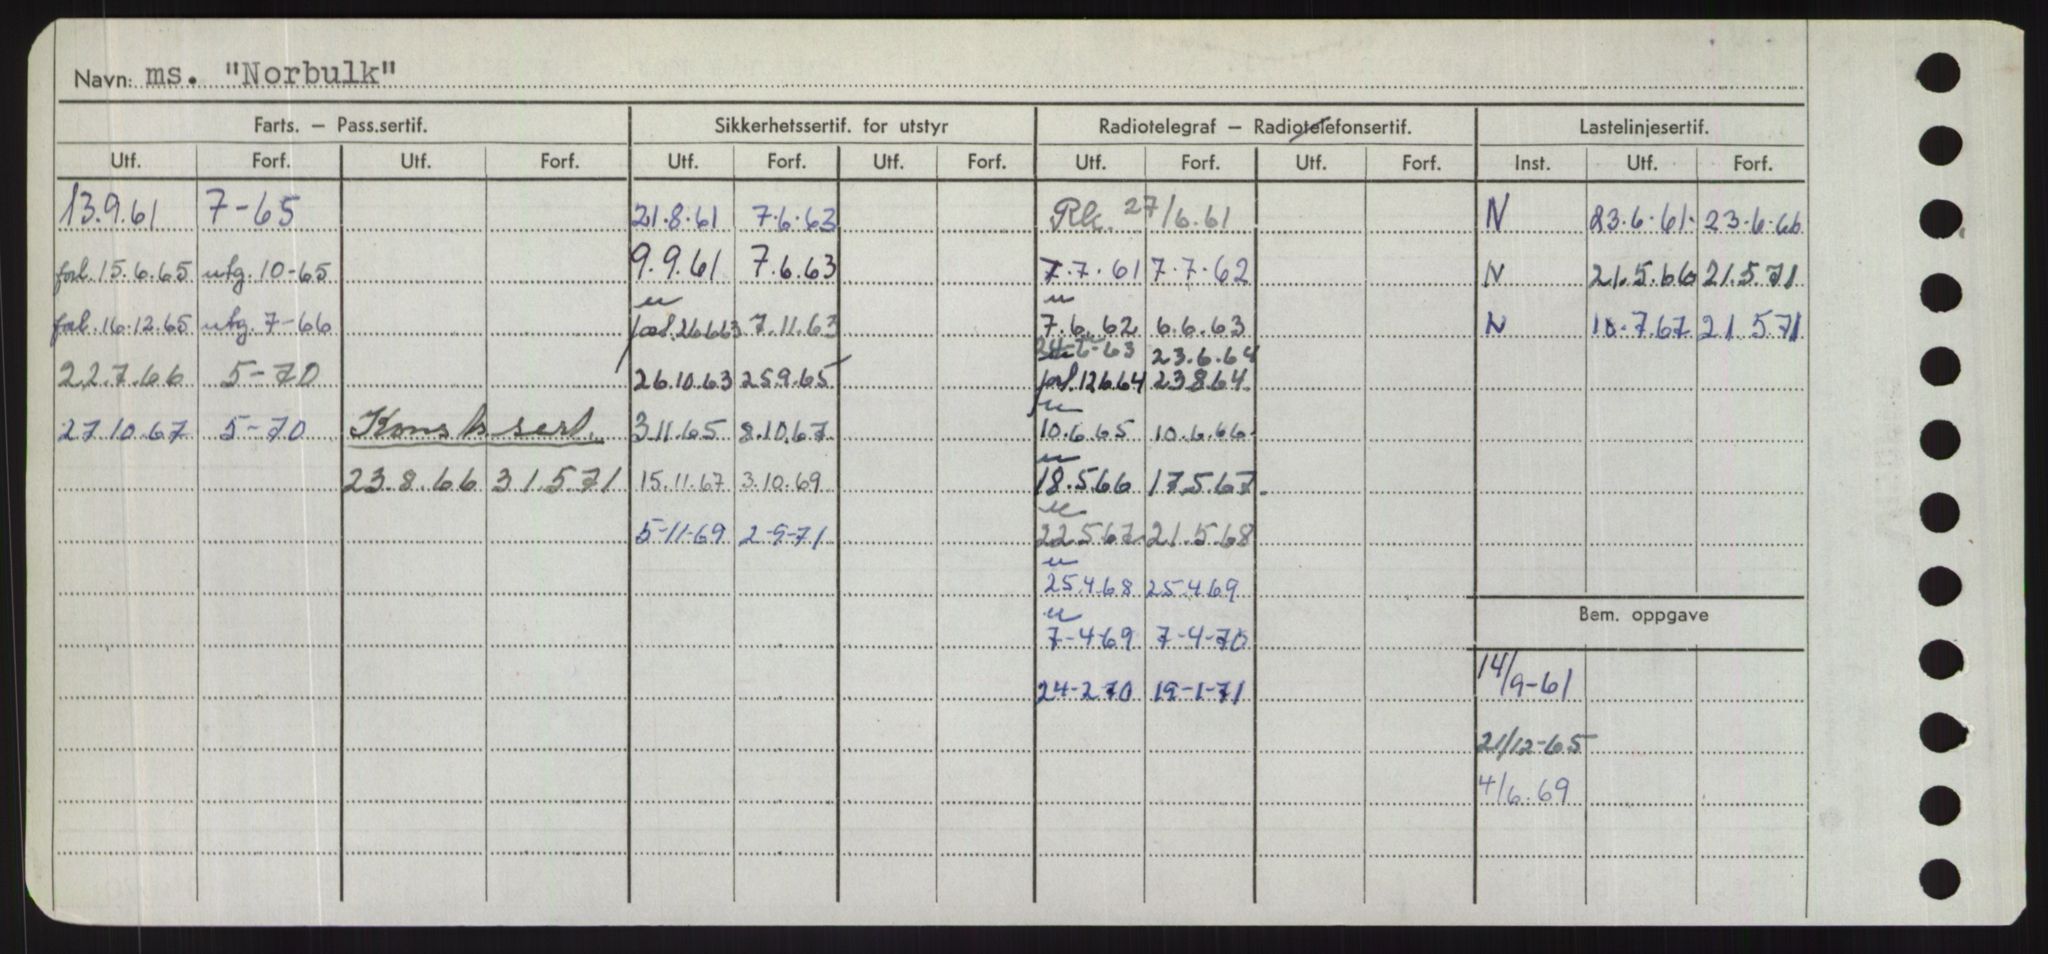 Navn: ms. "Norbulk"
Farts. – Pass.sertif. Sikkerhetssertif. for utstyr Radiotelegraf – Radiotelefonsertif. Lastelinjesertif.
Utf. Forf. Utf. Forf. Utf. Forf. Utf. Forf. Utf. Forf. Utf. Forf. Inst. Utf. Forf.
13.9.61 7-65 21.8.61 7.6.63 27/6.61 N 23.6.61. 23.6.66
forl. 15.6.65 utg. 10-65 9.9.61 7.6.63 7.7.61 7.7.62 N 21.5.66 21.5.71
u u
forl. 16.12.65 utg. 7-66 forl. 26.6.63 7.11.63 7.6.62 6.6.63 N 10.7.67 21.5.71
63 23.6.64
22.7.66 5-70 26.10.63 25.9.65 forl. 12.6.64 23.8.64
u
27.10.67 5-70 Konst. sert. 3.11.65 8.10.67 10.6.65 10.6.66
u
23.8.66 31.5.71 15.11.67 3.10.69 18.5.66 17.5.67.
u
5-11-69 2-9-71 22.5.67 21.5.68
u
25.4.68 25.4.69
u
Bem. oppgave
7-4-69 7-4-70
14/9-61
24-2-70 19-1-71
21/12-65
4/6.69